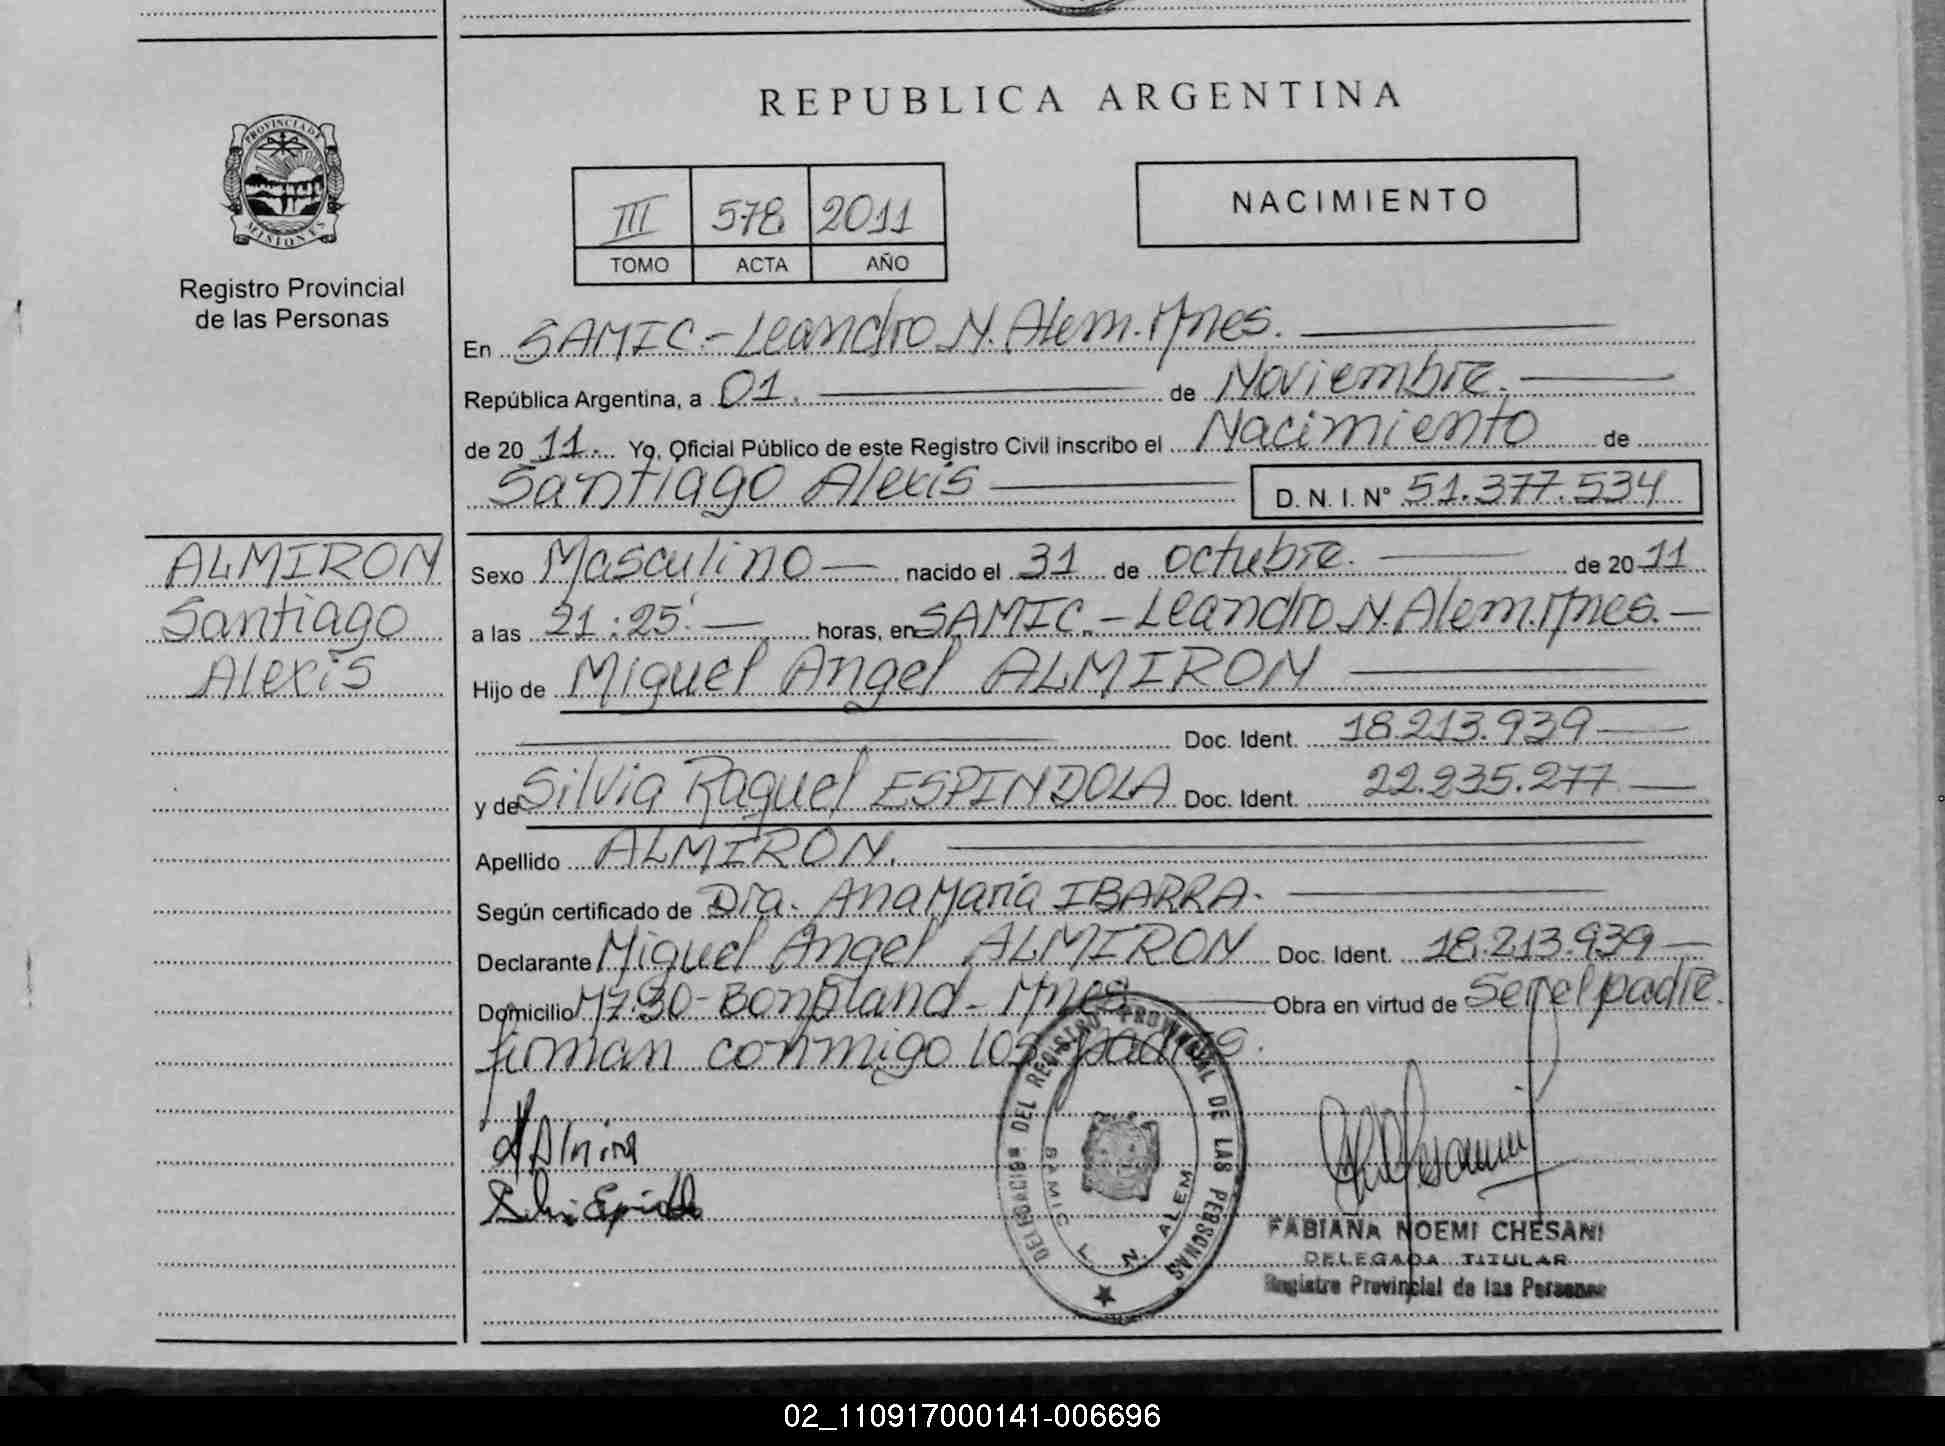 REPUBLICA ARGENTINA
PROVINCIA DE
MISIONES
Registro Provincial
de las Personas
III 578 2011
TOMO ACTA AÑO
NACIMIENTO
En SAMIC.-Leandro N. Alem. Mnes.
República Argentina, a 01. de Noviembre.
de 2011. Yo, Oficial Público de este Registro Civil inscribo el Nacimiento de
Santiago Alexis D. N. I. Nº 51.377.534
ALMIRON
Santiago
Alexis
Sexo Masculino nacido el 31 de octubre. de 2011
a las 21:25' horas, en SAMIC.-Leandro N. Alem. Mnes.-
Hijo de Miguel Angel ALMIRON
Doc. Ident. 18.213.939
y de Silvia Raquel ESPINDOLA Doc. Ident. 22.235.277
Apellido ALMIRON.
Según certificado de Dra. Ana Maria IBARRA.
Declarante Miguel Angel ALMIRON Doc. Ident. 18.213.939
Domicilio Mz.30-Bonpland-Mnes Obra en virtud de Ser el padre.
firman conmigo los padres.
DELEGACION DEL REGISTRO PROVINCIAL DE LAS PERSONAS
SAMIC L. N. ALEM
FABIANA NOEMI CHESANI
DELEGADA TITULAR
Registro Provincial de las Personas
02_110917000141-006696